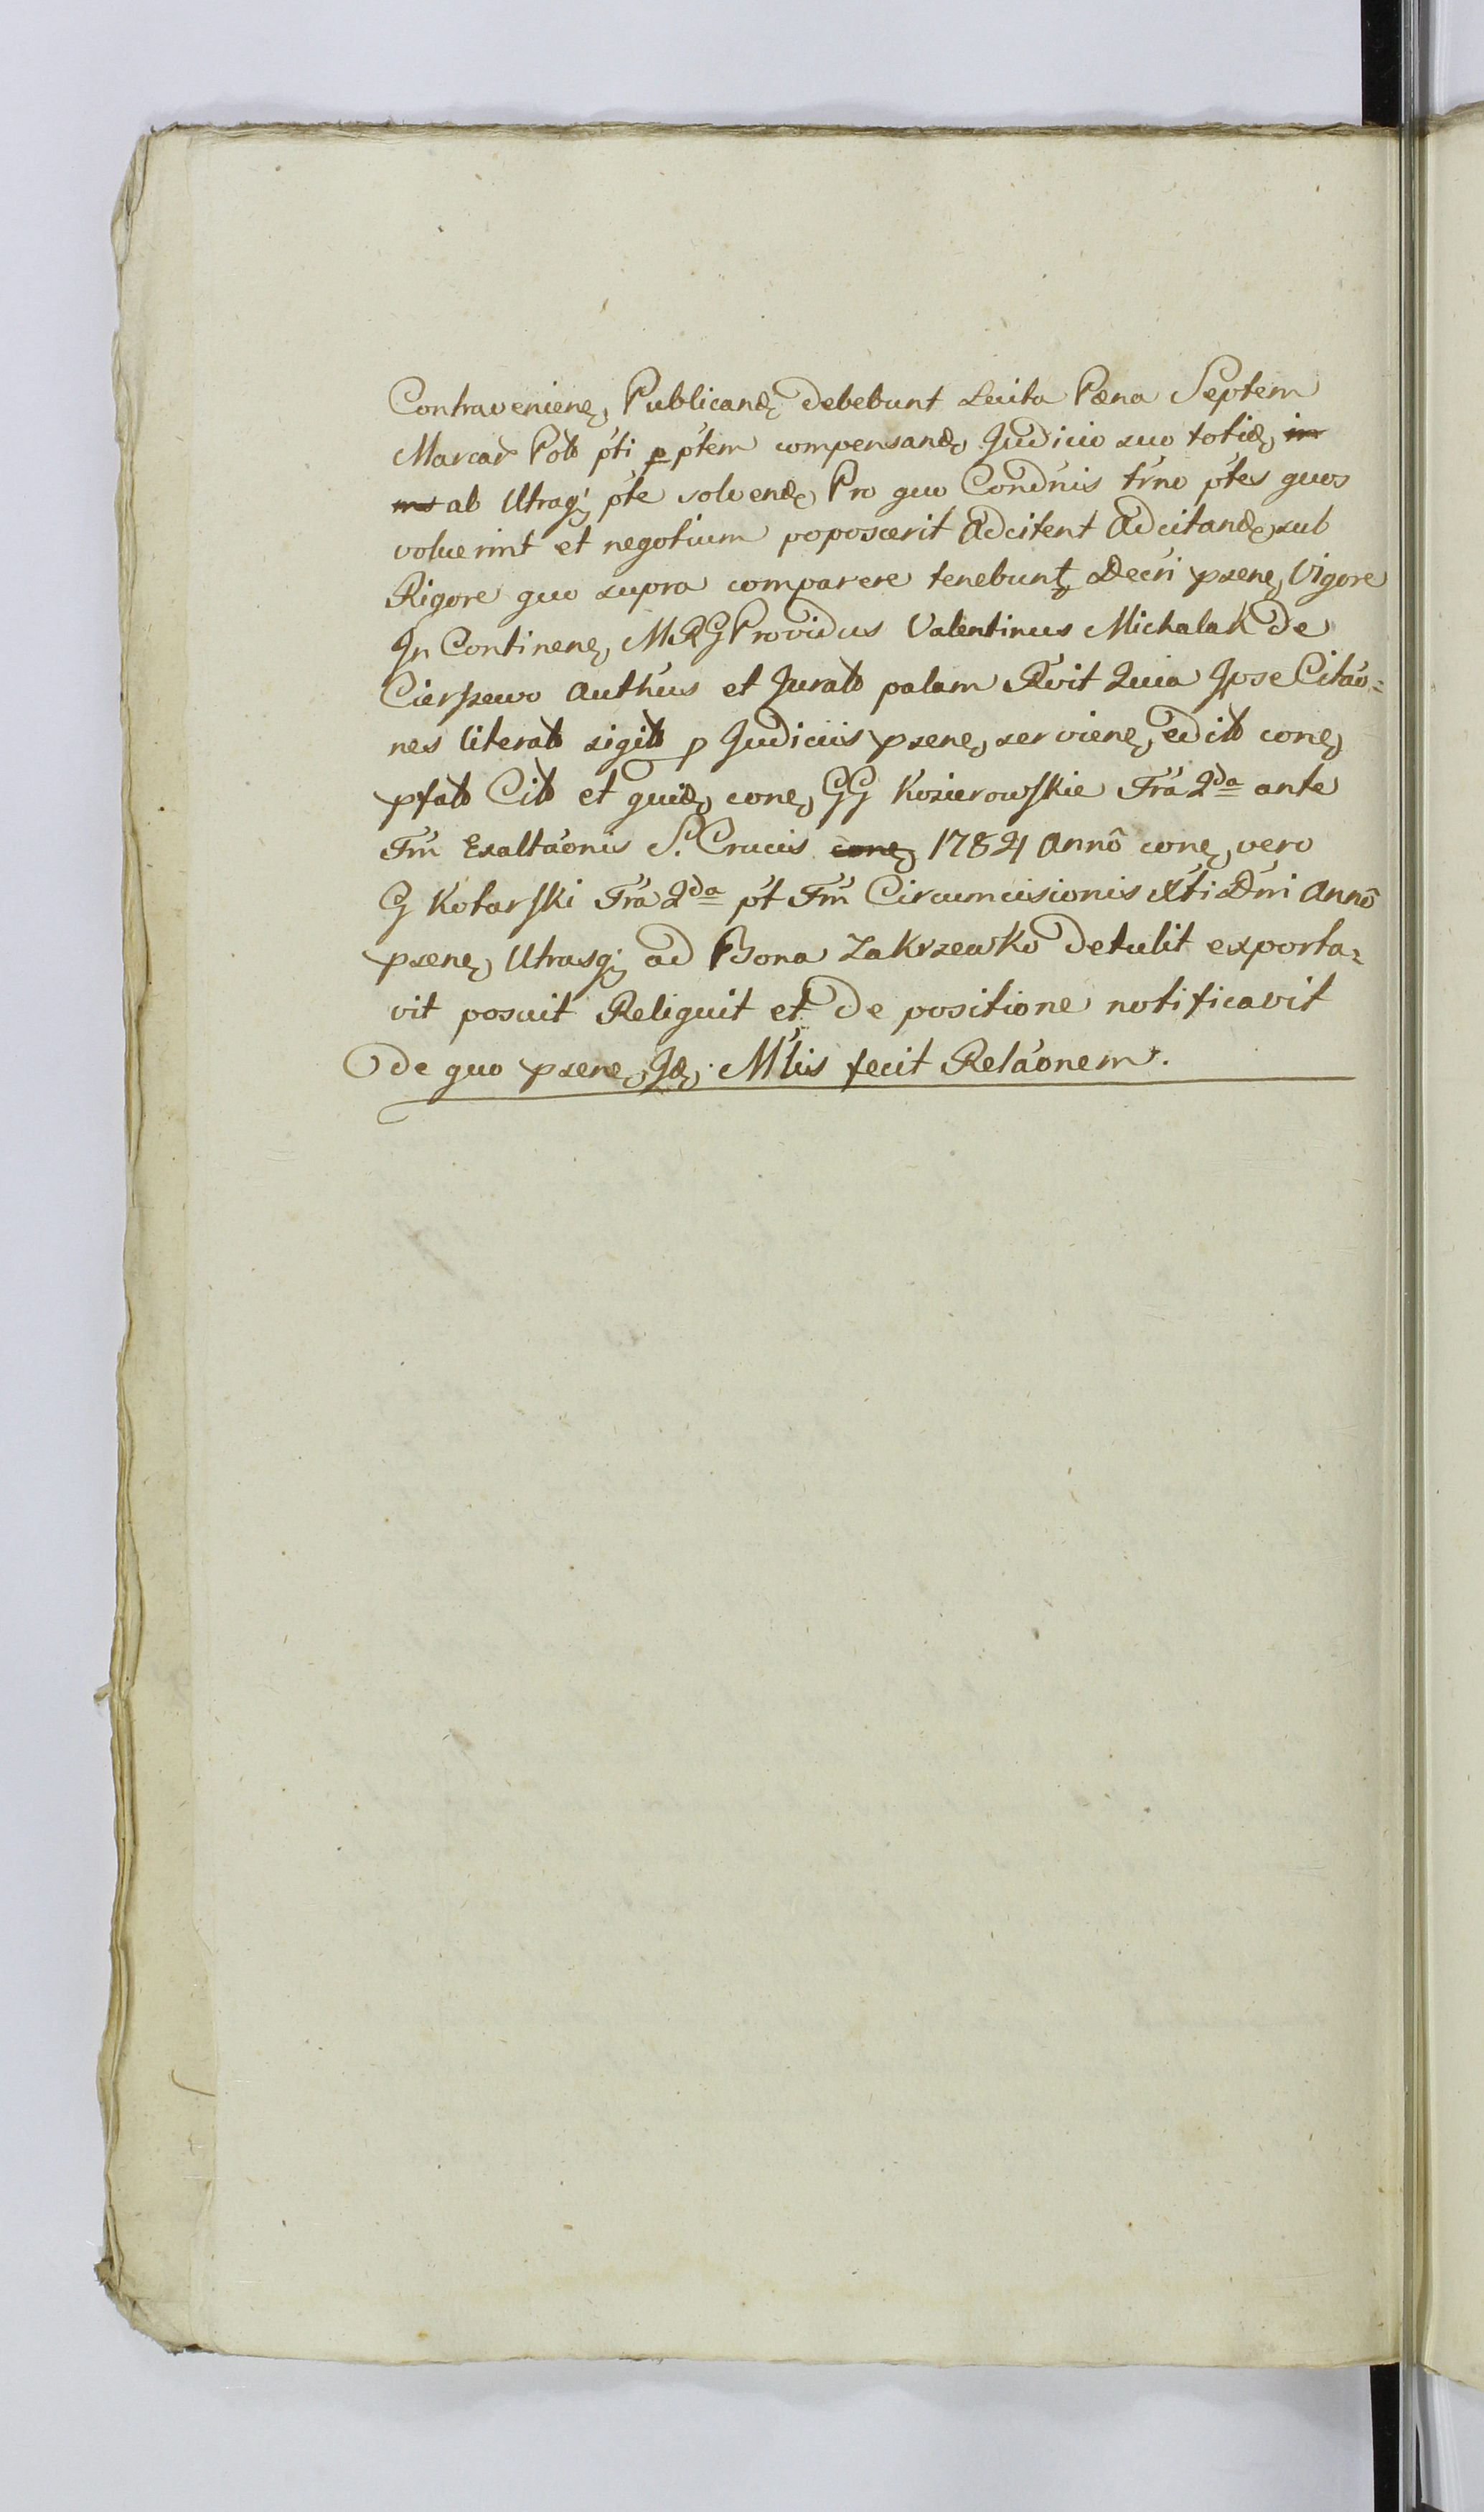 Contravenienₑ, Publicandₑ debebunt Luita Pæna Septem
Marcar Polo pti p ptem compensandₑ Judicio suo totidₑ
ab Utraqꝫ pte solvendₑ Pro quo Condnis trno ptes quos
voluerint et negotium poposcerit Adcitent Adcitandₑ sub
Rigore quo supra comparere tenebunt Decri psenₑ Vigore
In Continenₑ MRG Providus Valentinus Michalak de
Cierpewo Authus et Jurato palam Rvit Quia Ipse Citao=
nes literato sigito p Judiciis psenₑ servienₑ edito conₑ
pfato Cito et quidₑ conₑ GG Kosierowskie Fra 2da ante
Fm Exaltaonis S. Crucis conₑ 1784 Annô conₑ vero
G Kotarski Fra 2da pt Fm Circumcisionis Xti Dni Annô
psenₑ Utrasqꝫ ad Bona Zakrzewko detulit exporta=
vit posuit Reliquit et de positione notificavit
De quo psenₑ Idₑ Mlis fecit Relaonem.